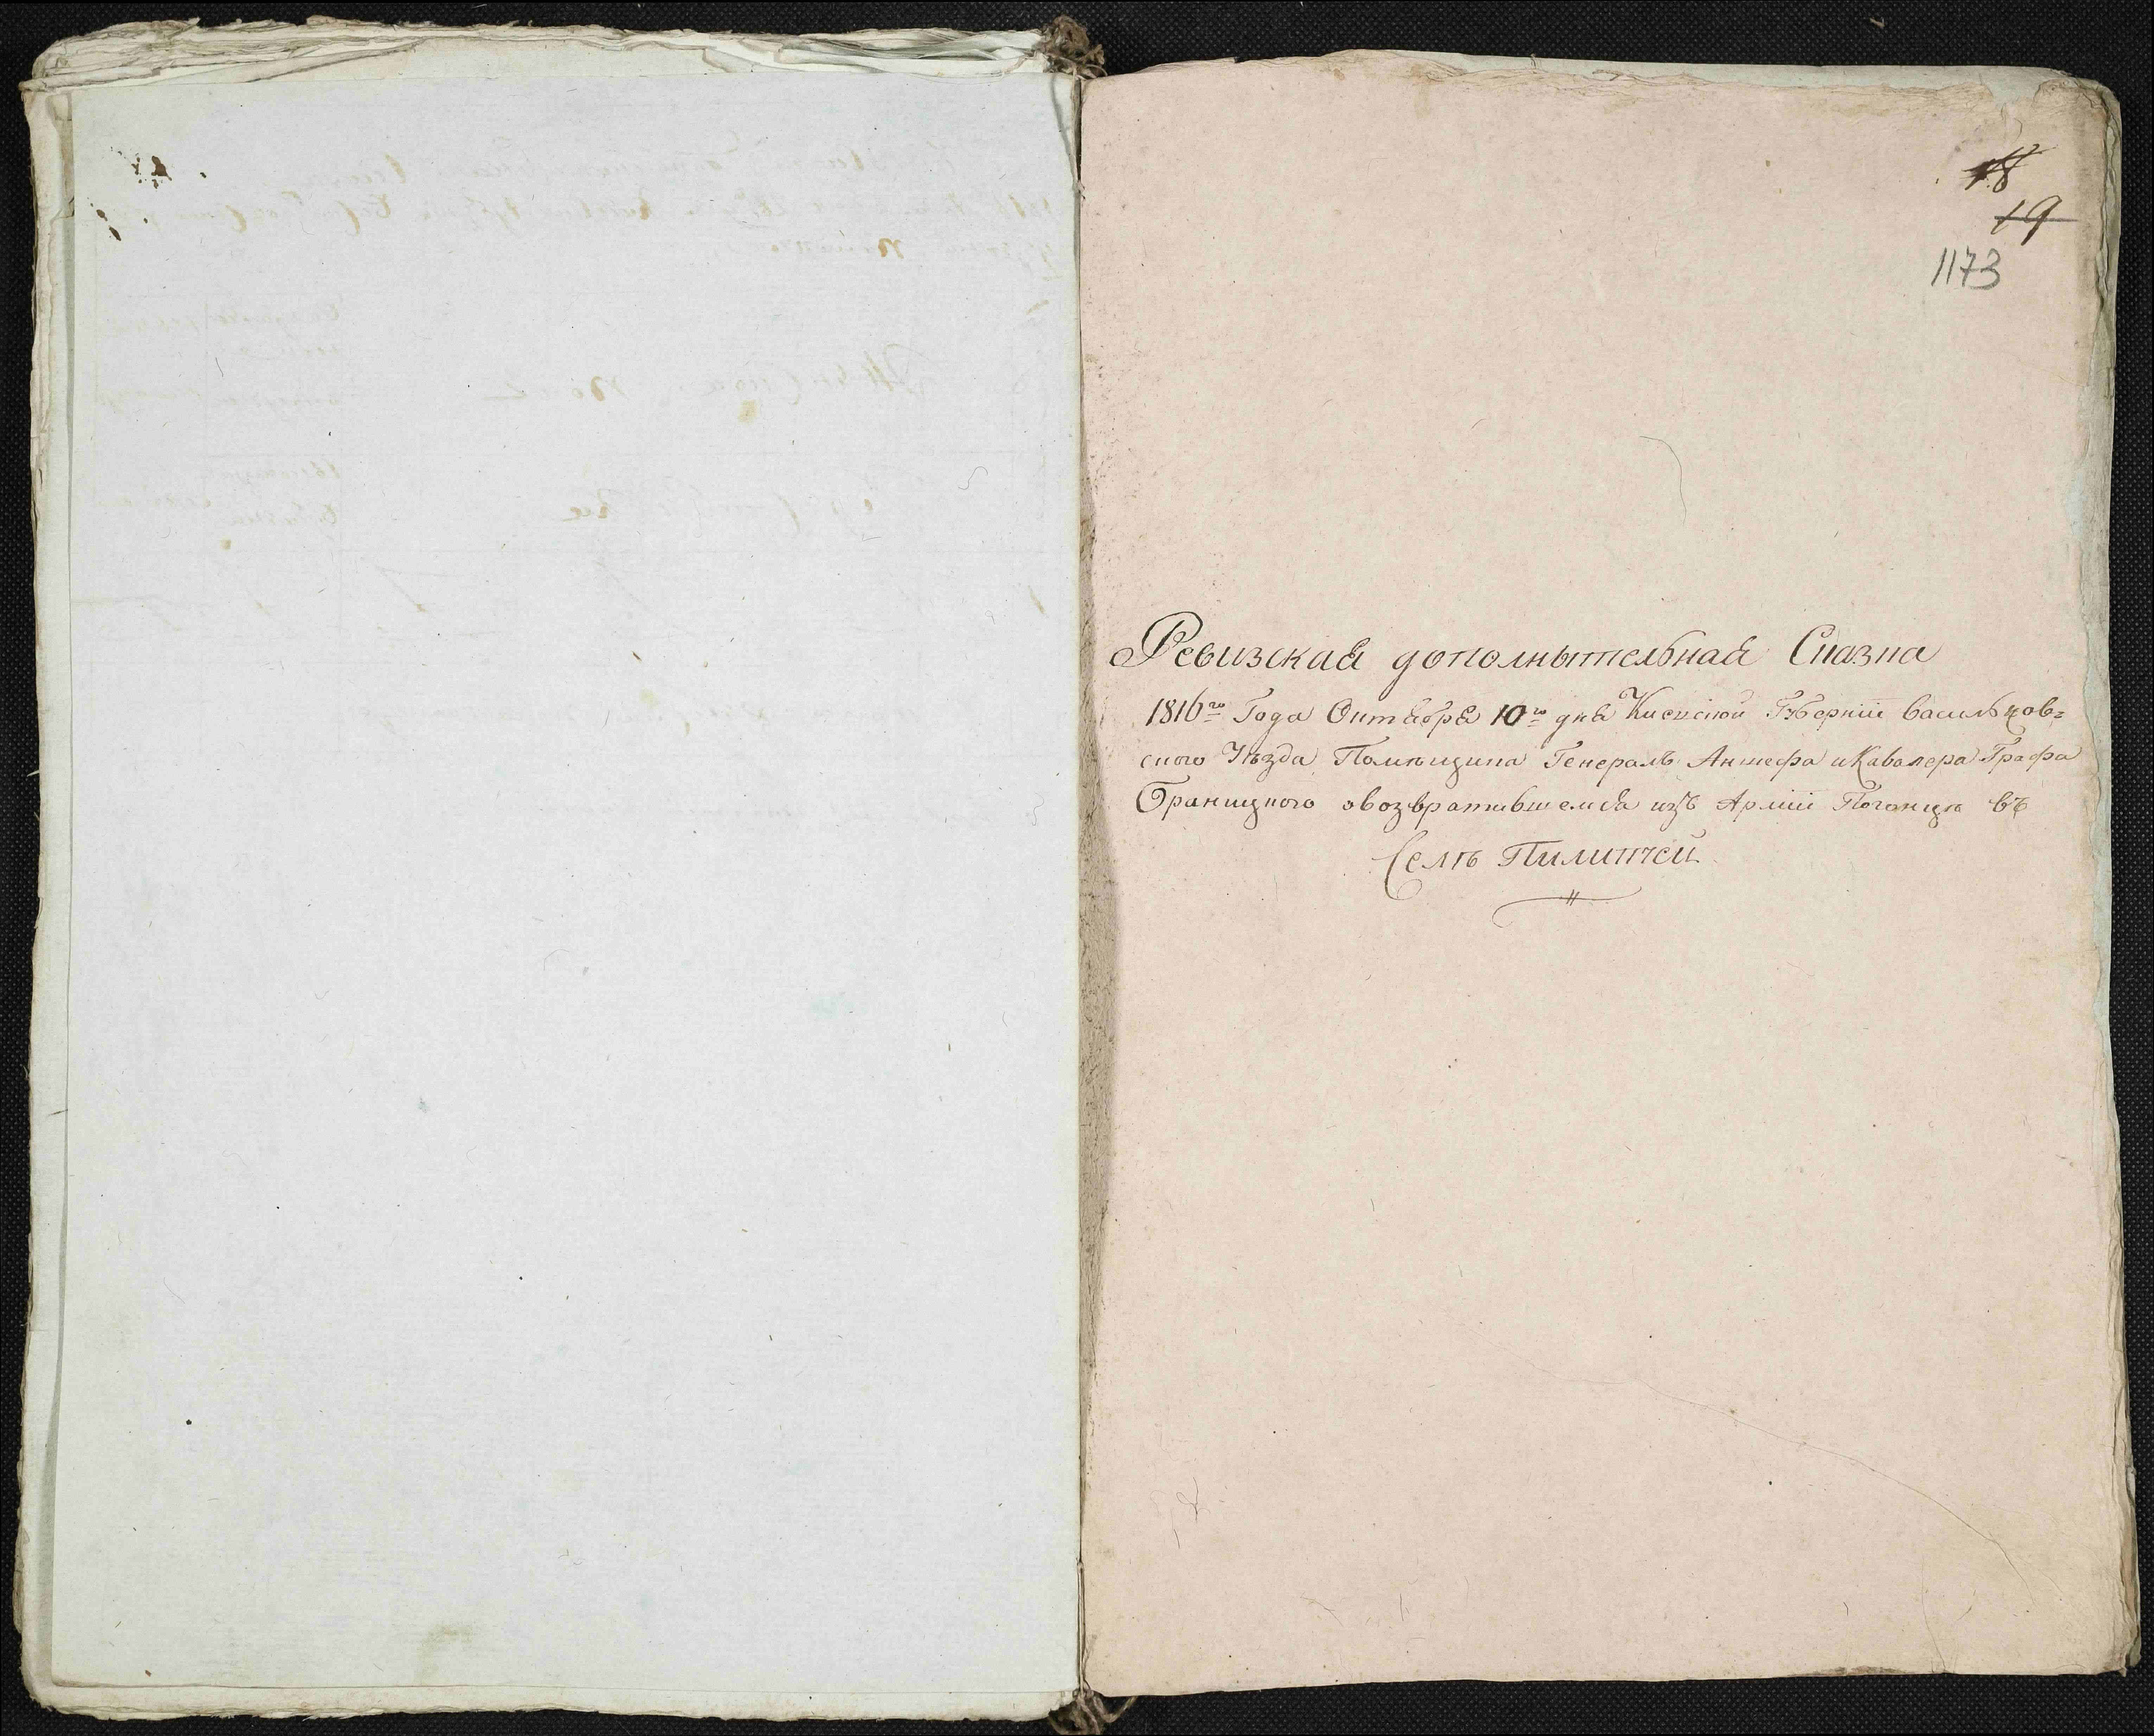 18
19
1173
Ревизская дополнытельная Сказка
1816го Года Октября 10го дня Киевской Губерніи васильков=
ского Уѣзда Помѣщика Генералъ Аншефа и Кавалера Графа
Браницкого овозвратившемся изъ Арміи Погонцѣ въ
Селѣ Пилипчей